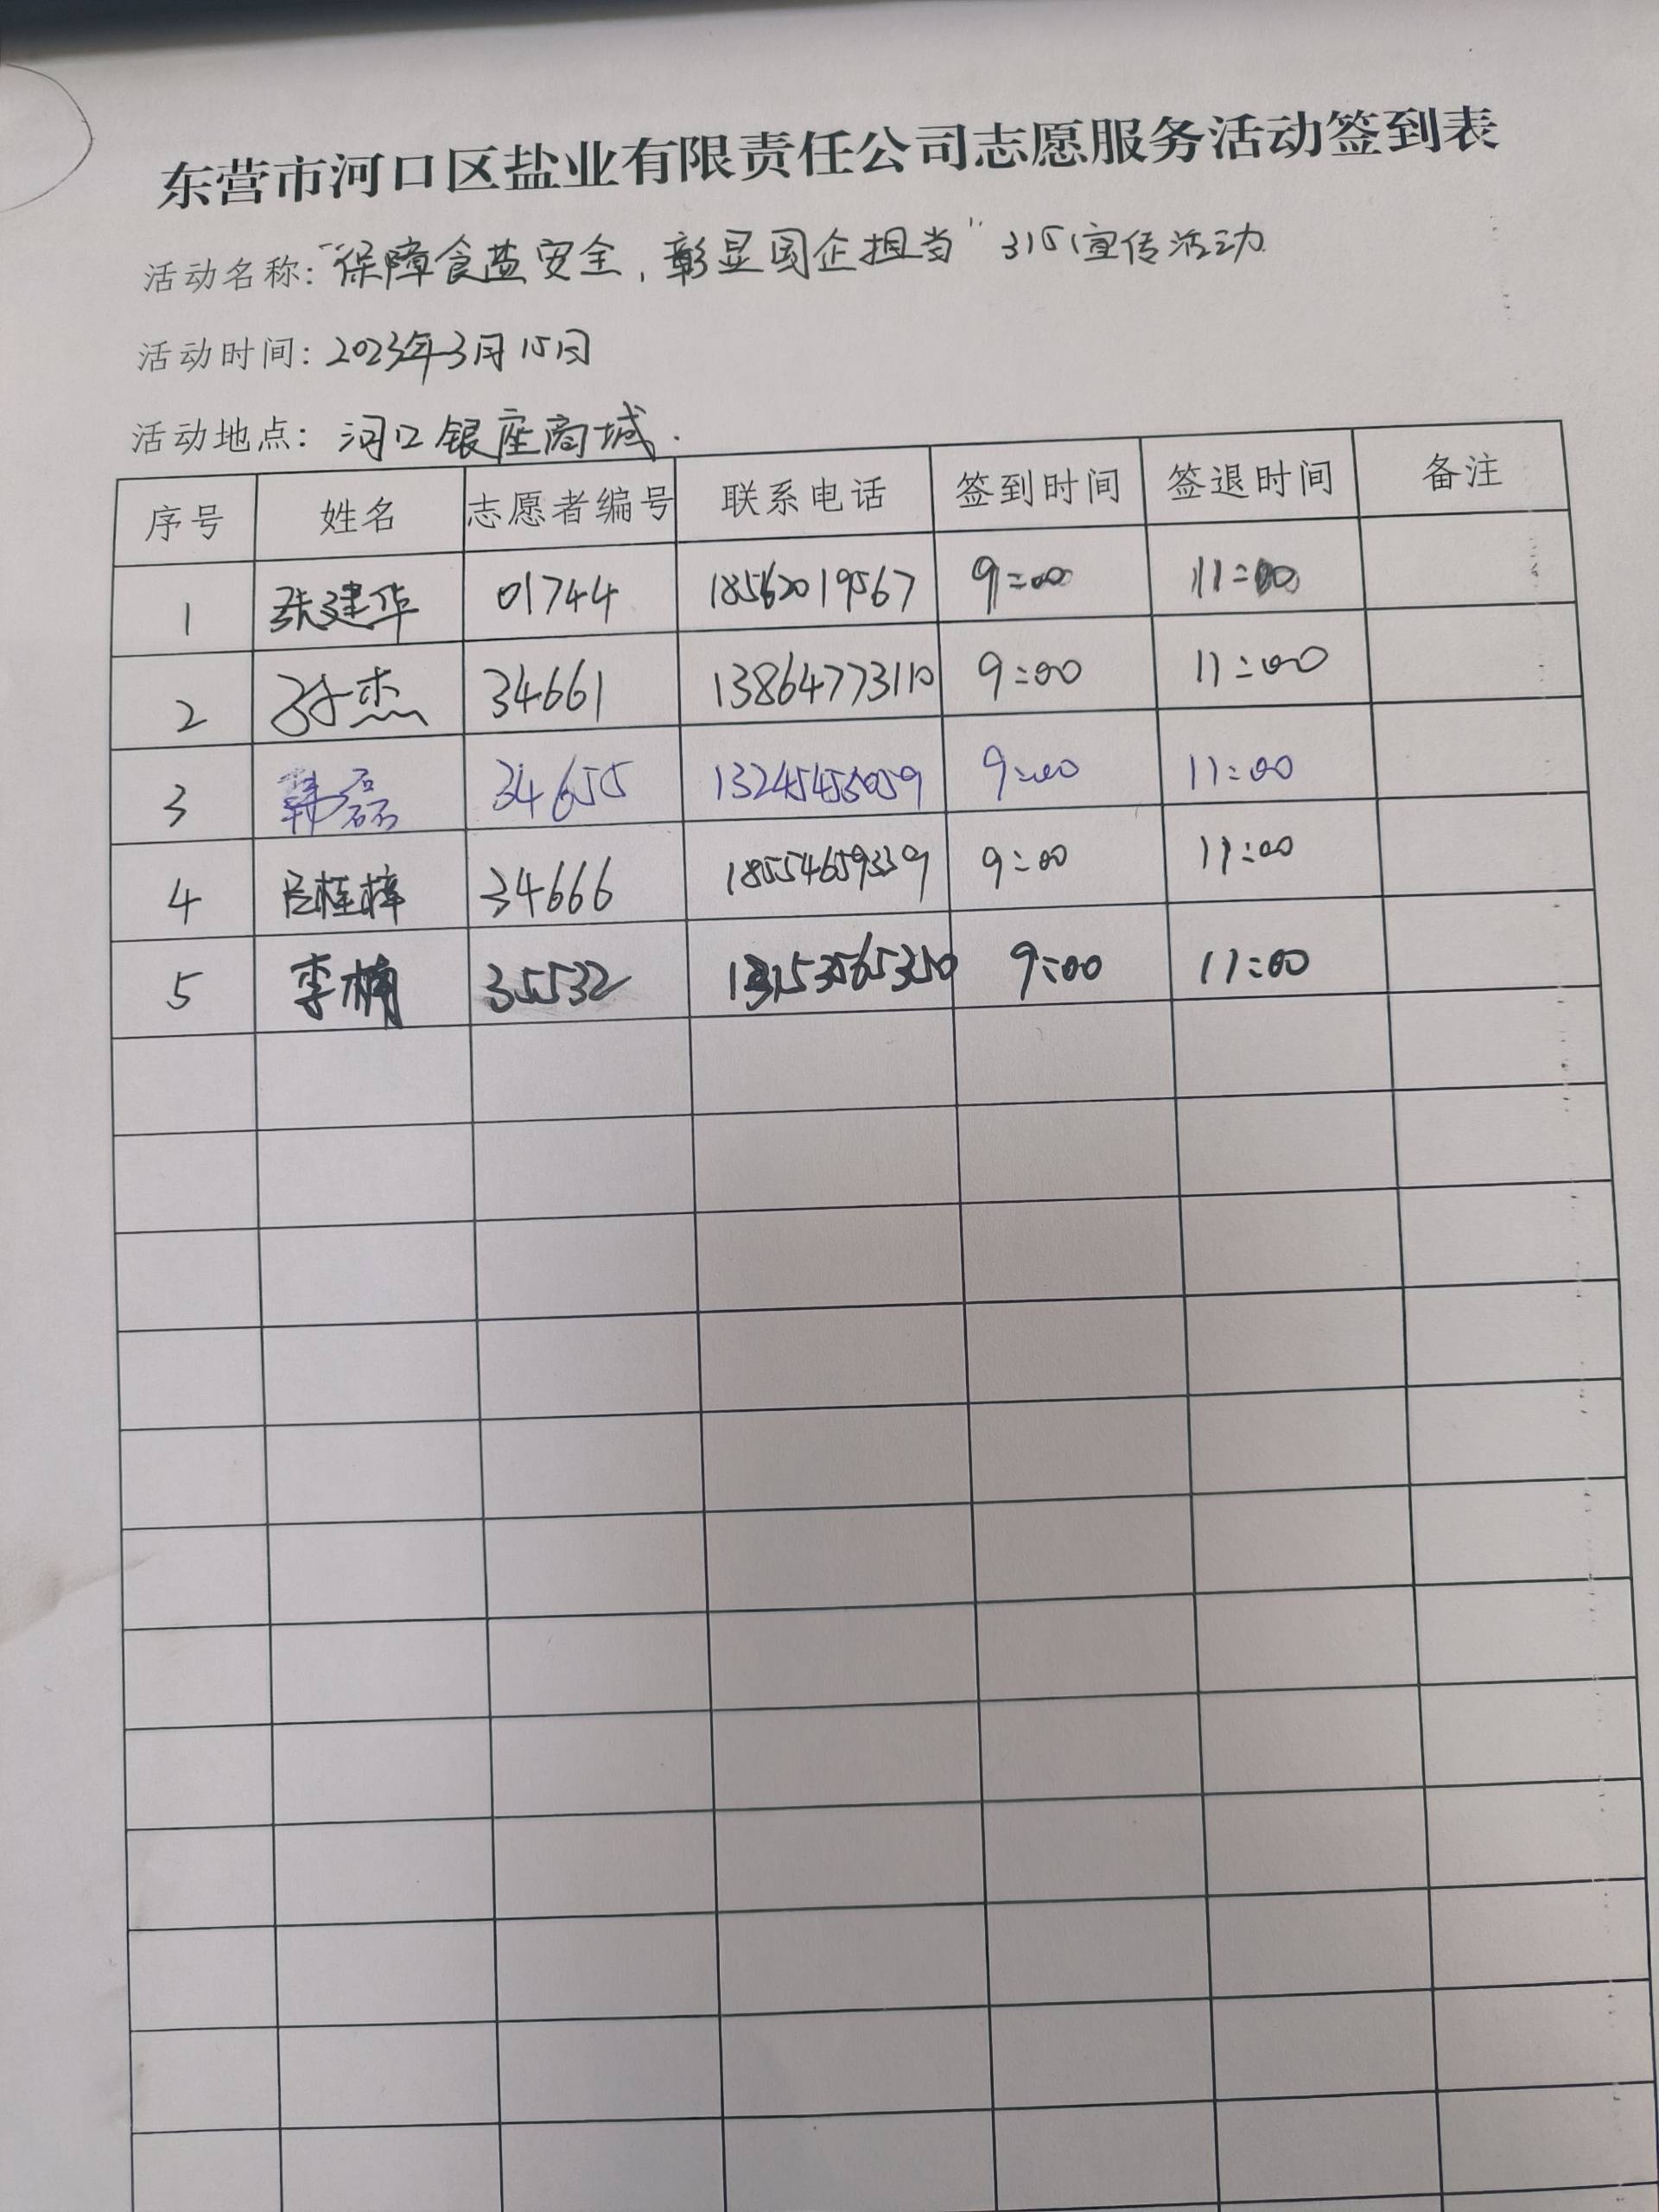 东营市河口区盐业有限责任公司志愿服务活动签到表
活动名称:“保障食盐安全,彰显国企担当”315宣传活动
活动时间:2023年3月15日
活动地点:河口银座商城.
序号 姓名 志愿者编号 联系电话 签到时间 签退时间 备注
1 张建华 01744 18562019567 9:00 11:00
2 孙杰 34661 13864773110 9:00 11:00
3 韩磊 34655 9:00 11:00
4 吕桂梓 34666 18554659339 9:00 11:00
5 李楠 35532 9:00 11:00